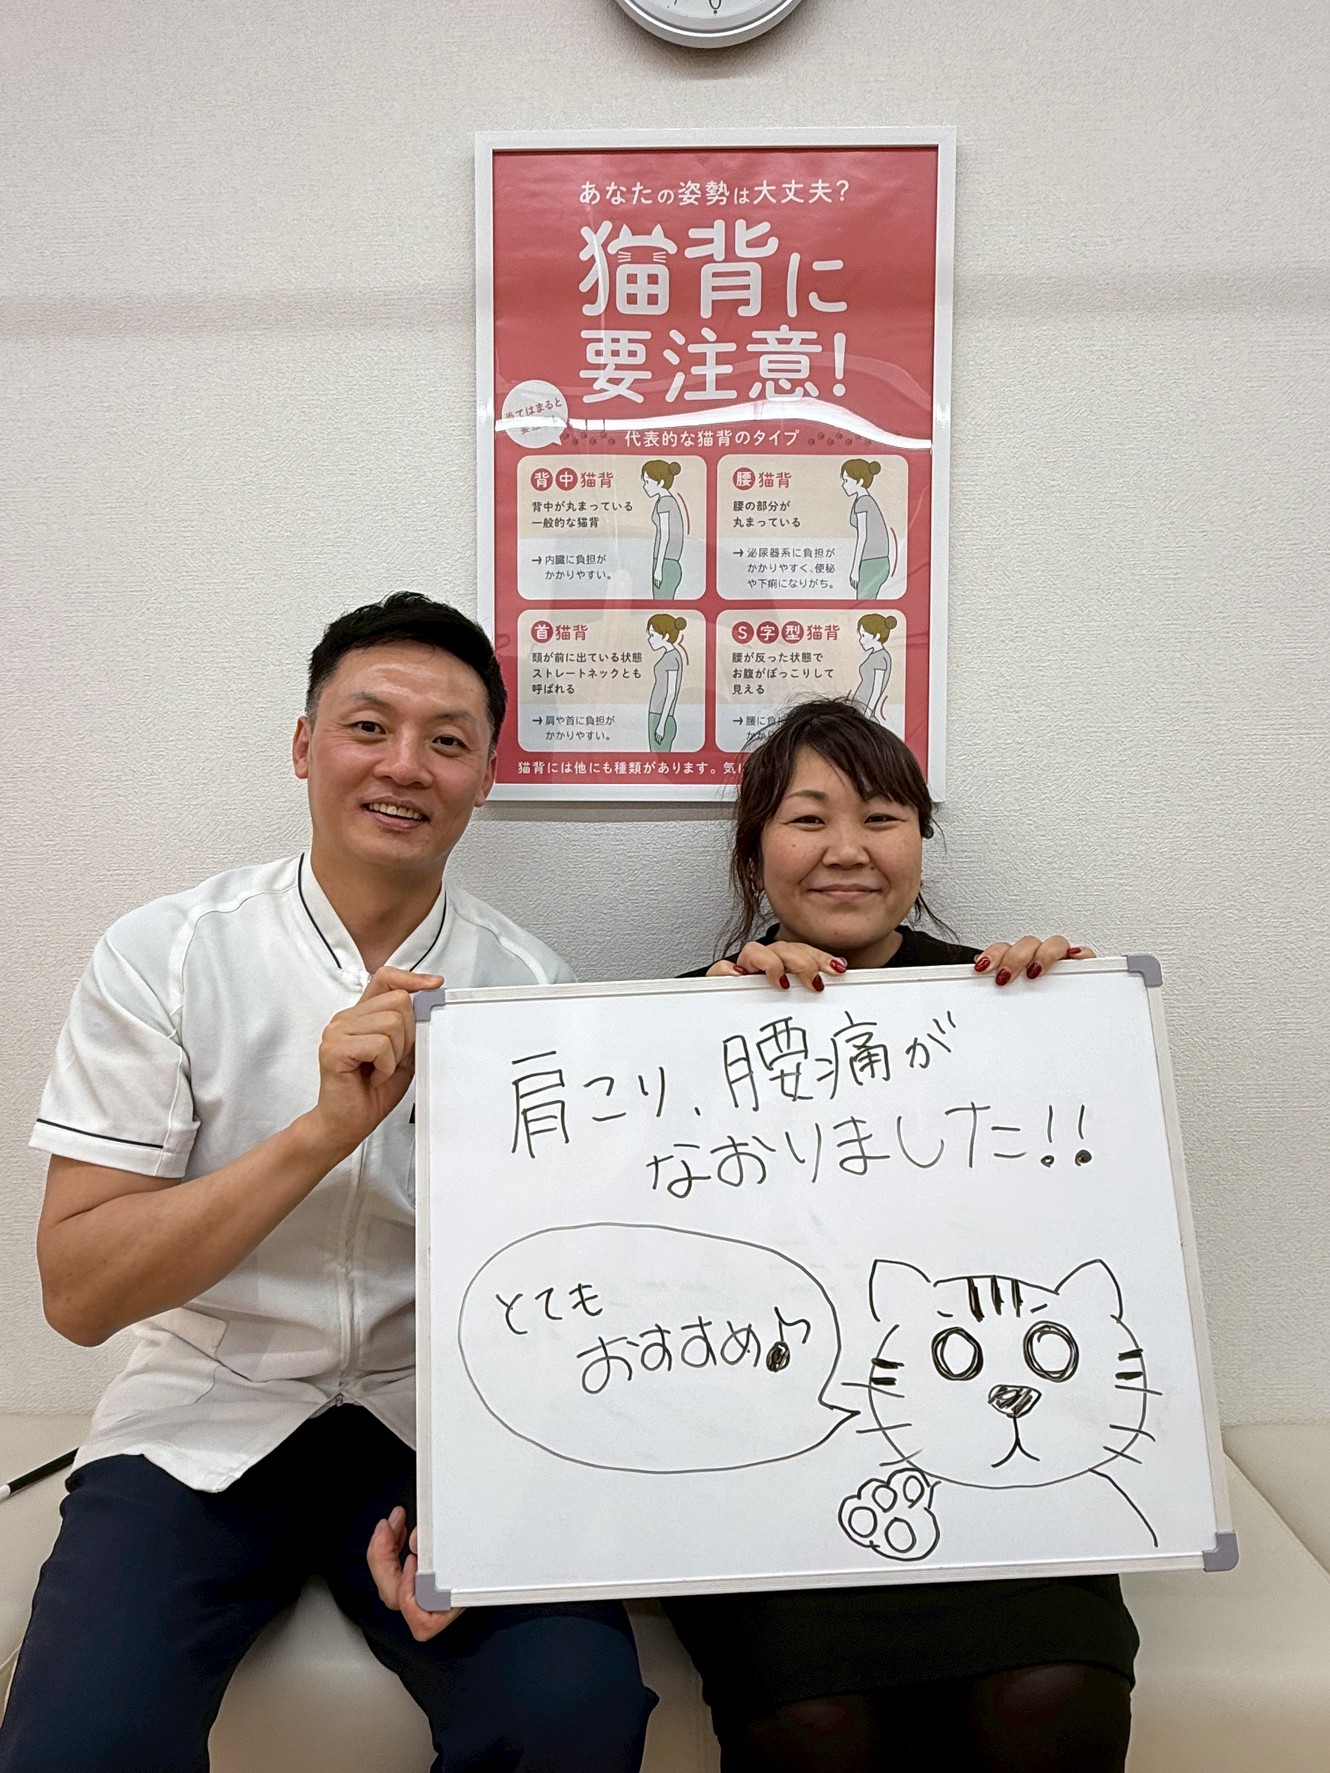 あなたの姿勢は大丈夫?
猫背に
要注意!
当てはまると
代表的な猫背のタイプ
背中猫背
背中が丸まっている
一般的な猫背
→内臓に負担が
かかりやすい。
腰猫背
腰の部分が
丸まっている
→泌尿器系に負担が
かかりやすく、便秘
や下痢になりがち。
首猫背
頭が前に出ている状態
ストレートネックとも
呼ばれる
→肩や首に負担が
かかりやすい。
S字型猫背
腰が反った状態で
お腹がぽっこりして
見える
→腰に負
猫背には他にも種類があります。気
肩こり、腰痛が
なおりました!!
とても
おすすめ♪